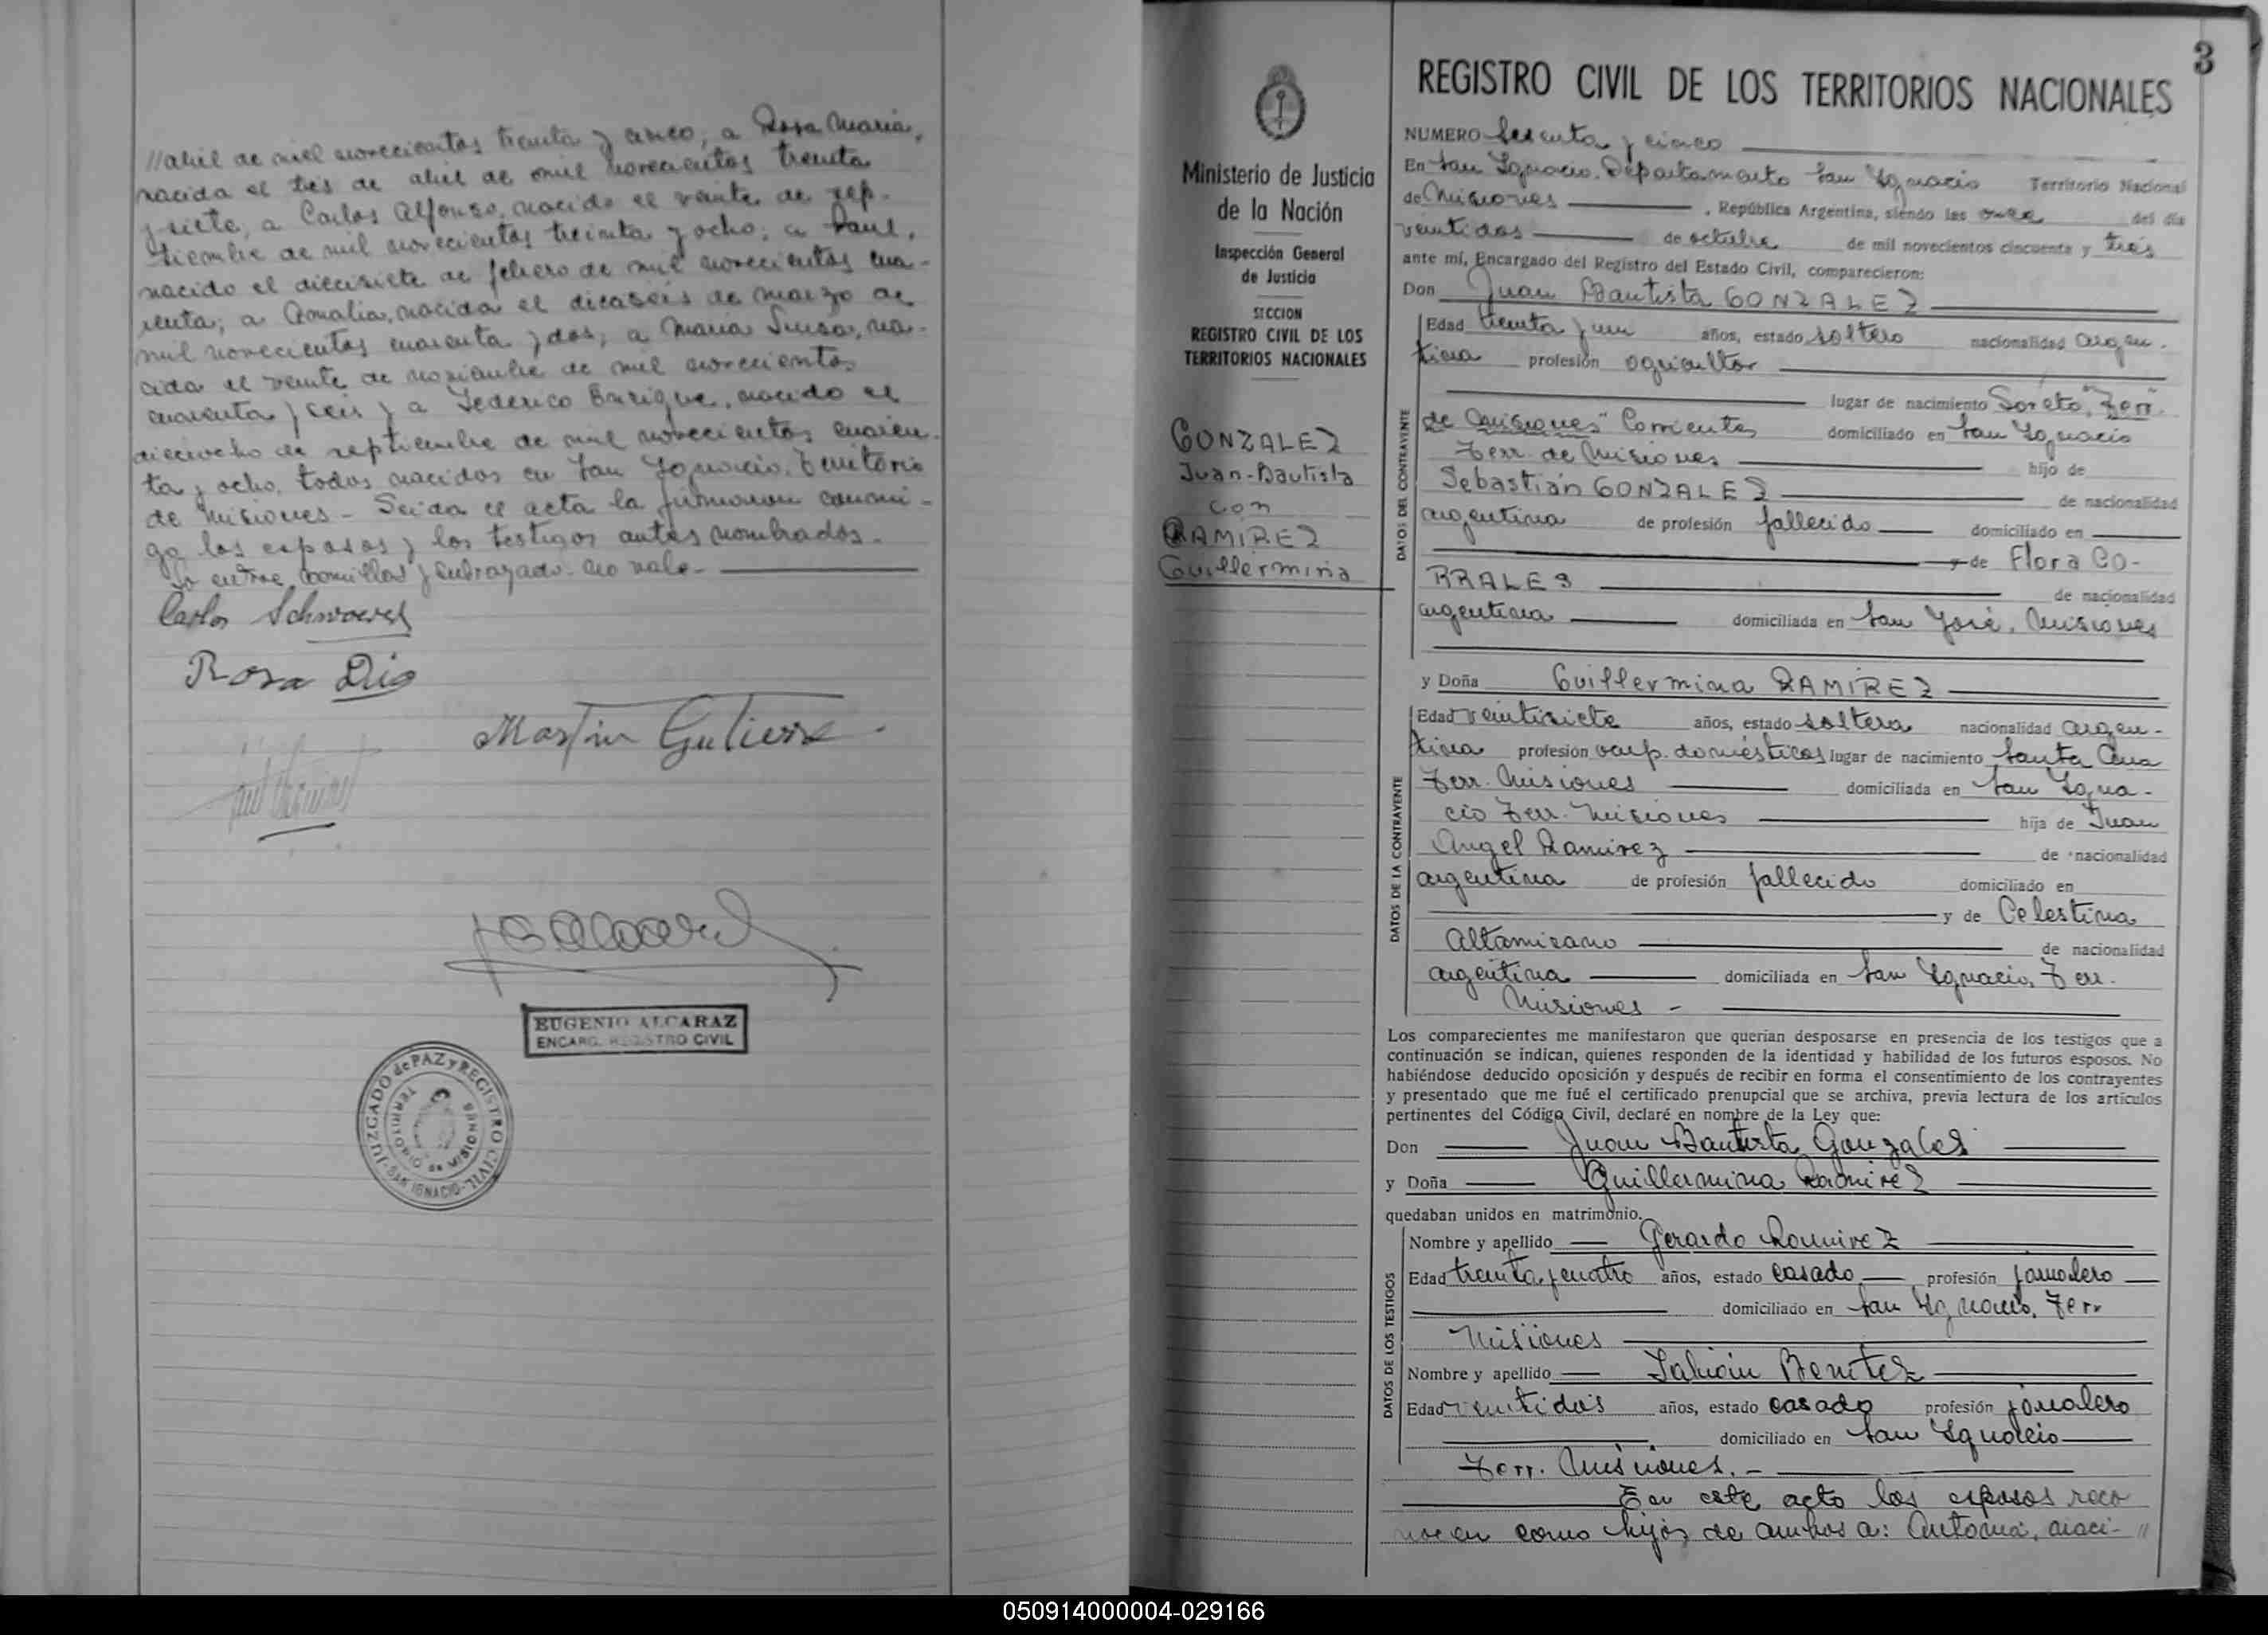 //abril de mil novecientos treinta y cinco, a Rosa María,
nacida el tres de abril de mil novecientos treinta
y siete, a Carlos Alfonso, nacido el veinte de sep-
tiembre de mil novecientos treinta y ocho; a Raul,
nacido el diecisiete de febrero de mil novecientos cua-
renta; a Amalia, nacida el dieciseis de marzo de
mil novecientos cuarenta y dos; a María Luisa, na-
cida el veinte de noviembre de mil novecientos
cuarenta y seis y a Federico Enrique, nacido el
dieciocho de septiembre de mil novecientos cuaren-
ta y ocho, todos nacidos en San Ignacio, Territorio
de Misiones - Leida el acta la firmaron conmi-
go los esposos y los testigos antes nombrados.
Lo entre comillas y subrayado no vale.
Carlos
Rosa
Martin
EUGENIO ALCARAZ
ENCARG. REGISTRO CIVIL
JUZGADO de PAZ y REGISTRO CIVIL
SAN IGNACIO
TERRITORIO de MISIONES
3
REGISTRO CIVIL DE LOS TERRITORIOS NACIONALES
Ministerio de Justicia
de la Nación
Inspección General
de Justicia
SECCION
REGISTRO CIVIL DE LOS
TERRITORIOS NACIONALES
GONZALEZ
Juan-Bautista
con
RAMIREZ
Guillermina
NUMERO Sesenta y cinco
En San Ignacio, Departamento San Ignacio Territorio Nacional
de Misiones , República Argentina, siendo las once del día
veintidos de octubre de mil novecientos cincuenta y tres
ante mí, Encargado del Registro del Estado Civil, comparecieron:
Don Juan Bautista GONZALEZ
DATOS DEL CONTRAYENTE
Edad treinta y un años, estado soltero nacionalidad argen-
tina profesión agricultor
lugar de nacimiento Loreto, "Terr.
de Misiones" Corrientes domiciliado en San Ignacio
Terr. de Misiones hijo de
Sebastián GONZALEZ de nacionalidad
argentina de profesión fallecido domiciliado en
y de Flora CO-
RRALES de nacionalidad
argentina domiciliada en San José, Misiones
y Doña Guillermina RAMIREZ
DATOS DE LA CONTRAYENTE
Edad veintisiete años, estado soltera nacionalidad argen-
tina profesión ocup. domésticas lugar de nacimiento Santa Ana
Terr. Misiones domiciliada en San Igna-
cio Terr. Misiones hija de Juan
Angel Ramirez de nacionalidad
argentina de profesión fallecido domiciliado en
y de Celestina
Altamirano de nacionalidad
argentina domiciliada en San Ignacio, Terr.
Misiones -
Los comparecientes me manifestaron que querían desposarse en presencia de los testigos que a
continuación se indican, quienes responden de la identidad y habilidad de los futuros esposos. No
habiéndose deducido oposición y después de recibir en forma el consentimiento de los contrayentes
y presentado que me fué el certificado prenupcial que se archiva, previa lectura de los artículos
pertinentes del Código Civil, declaré en nombre de la Ley que:
Don Juan Bautista Gonzales
y Doña Guillermina Ramirez
quedaban unidos en matrimonio.
DATOS DE LOS TESTIGOS
Nombre y apellido Gerardo Ramirez
Edad treinta y cuatro años, estado casado profesión jornalero
domiciliado en San Ignacio, Terr
Misiones
Nombre y apellido Benitez
Edad veintidós años, estado casado profesión jornalero
domiciliado en San Ignacio
Terr. Misiones. -
En este acto los esposos reco
nocen como hijos de ambos a: Antonia, naci- //
050914000004-029166